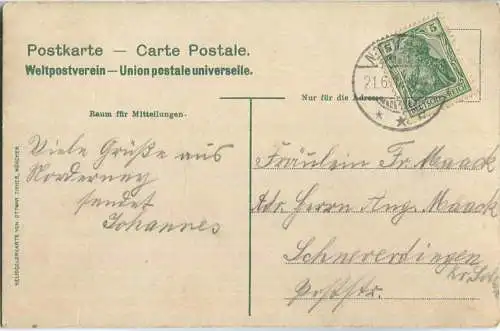 Postkarte — Carte Postale.
Weltpostverein — Union postale universelle.
5
21.6.
DEUTSCHES REICH
Nur für die Adresse.
Raum für Mitteilungen.
Viele Grüße aus
Norderney
sendet
Johannes
Fräulein Fr. Maack
Adr. Herrn Aug. Maack
Schneverdingen
Kr. Soltau
Poststr.